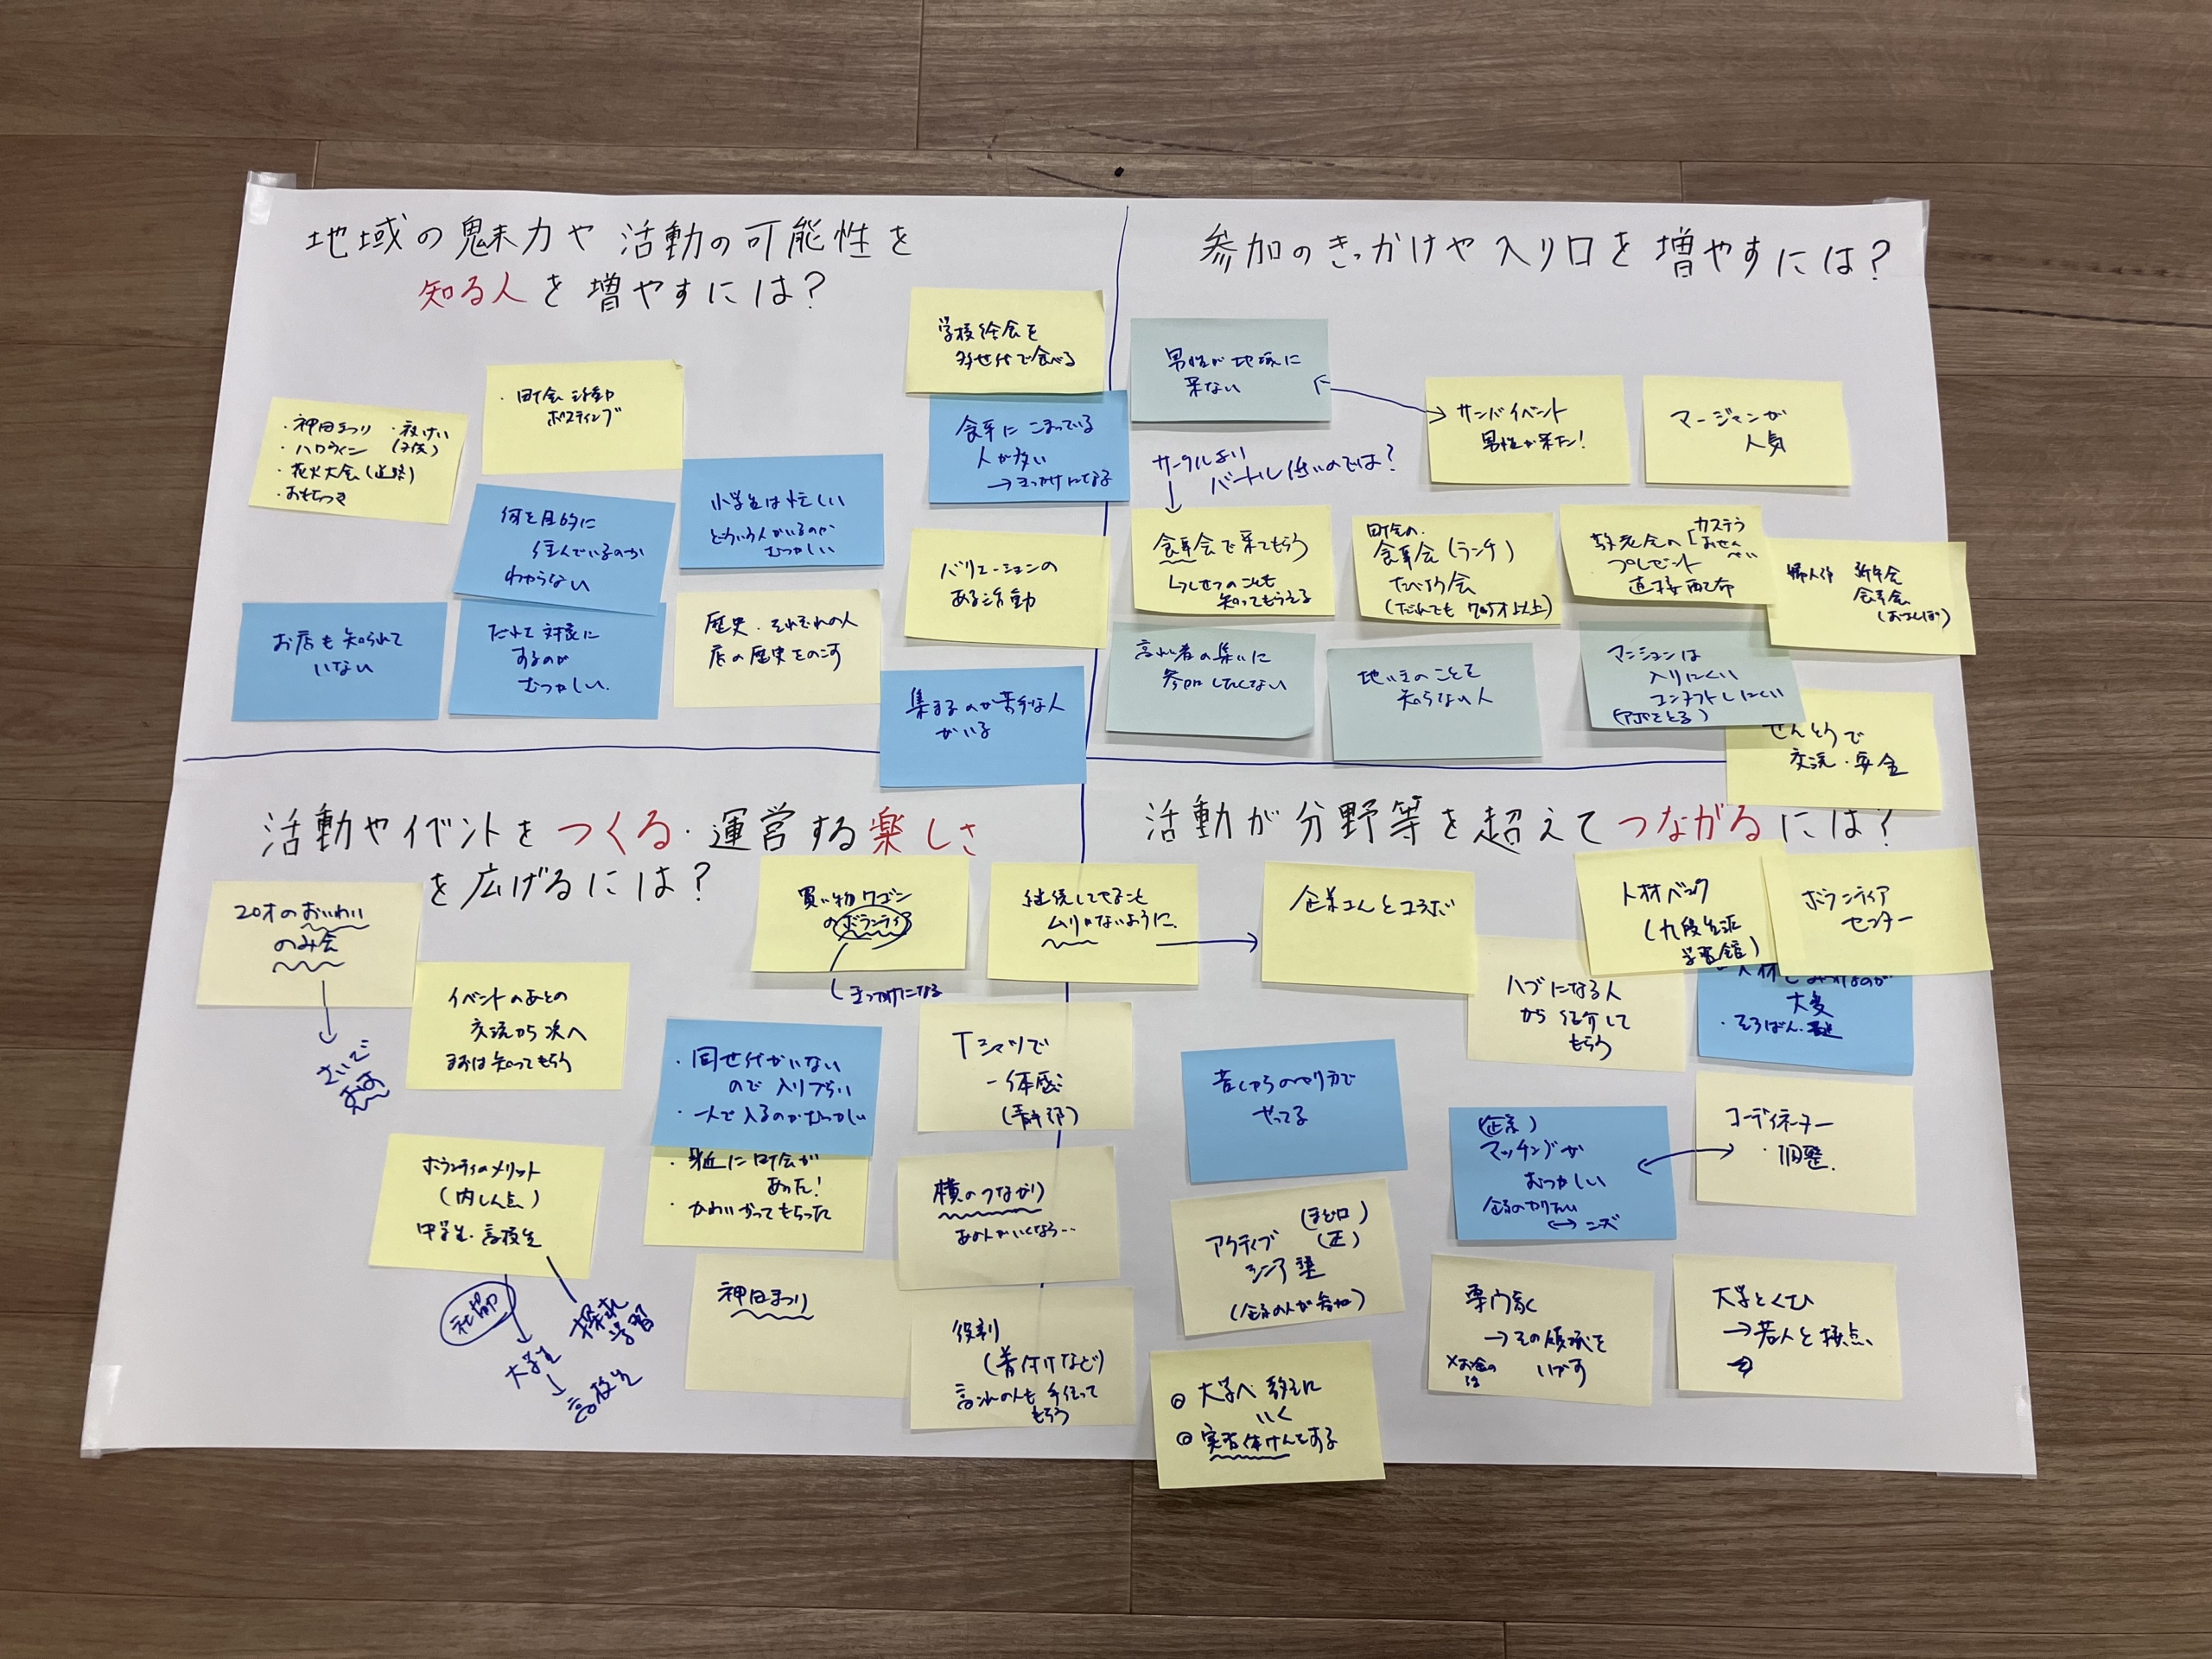 地域の魅力や活動の可能性を
知る人を増やすには?
・神田まつり ・夜けい
・ハロウィン (子供)
・花火大会(道路)
・おもちつき
・町会活動
ポスティング
何を目的に
住んでいるのか
わからない
小学生は忙しい
どういう人がいるのか
むつかしい
お店も知られて
いない
だれを対象に
するのが
むつかしい.
歴史・それぞれの人
店の歴史をのこす
学校給食を
多世代で食べる
食事にこまっている
人が多い
→きっかけになる
バリエーションの
ある活動
集まるのが苦手な人
がいる
参加のきっかけや入り口を増やすには?
男性が地域に
来ない
サンバイベント
男性が来た!
マージャンが
人気
サークルより
ハードル低いのでは?
食事会で来てもらう
しせつのことも
知ってもらえる
町会の
食事会(ランチ)
たべよう会
(だれでも 70才以上)
敬老会の
プレゼント
直接配布
カステラ
おせんべい
婦人部 新年会
食事会
高れい者の集いに
参加したくない
地いきのことを
知らない人
マンションは
入りにくい
コンタクトしにくい
(アポをとる)
せんとうで
交流・安全
活動やイベントをつくる・運営する楽しさ
を広げるには?
20才のおいわい
のみ会
イベントのあとの
交流から次へ
まずは知ってもらう
ボランティのメリット
(内しん点)
中学生・高校生
社協
大学生
高校生
探求
学習
買い物ワゴン
のボランティ
きっかけになる
・同世代がいない
ので入りづらい
・一人で入るのがむつかしい
・身近に町会が
あった!
・かわいがってもらった
神田まつり
継続してやることも
ムリがないように.
Tシャツで
一体感
(青年部)
横のつながり
あの人がいくなら…
役割
(着付けなど)
高れいの人も手伝って
もらう
活動が分野等を超えてつながるには?
企業さんとコラボ
人材バンク
(九段生涯
学習館)
ボランティア
センター
ハブになる人
から紹介して
もらう
大変
・そろばん・
昔しからのやり方で
やってる
(企業)
マッチングが
むつかしい
企業のやりたい
↔ニーズ
コーディネーター
・調整.
アクティブ
シニア塾
(企業の人が参加)
専門家
→その領域を
いかす
×お金の
話
大学とくむ
→若人と接点、
◎大学へ教えに
いく
◎実習体けんをする